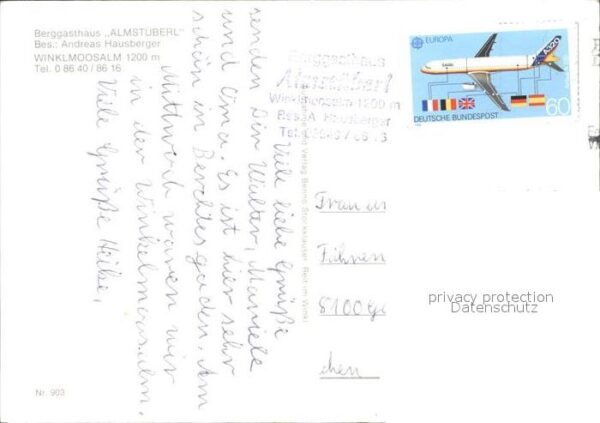 Berggasthaus „ALMSTÜBERL"
Bes.: Andreas Hausberger
WINKLMOOSALM 1200 m
Tel. 0 86 40 / 86 16
Berggasthaus
Almstüberl
Winklmoosalm 1200 m
Bes. A. Hausberger
Tel. 08640 / 86 16
EUROPA
A320
60
DEUTSCHE BUNDESPOST
Viele liebe Grüße
senden Dir Walter, Manuela
und Oma. Es ist hier sehr
schön in Berchtesgaden. Am
Mittwoch waren wir
in der Winkelmoosalm.
Viele Grüße Heike,
Verlag Benno Stockklauser, Reit im Winkl
Frau
8100 Ga
chen
privacy protection
Datenschutz
Nr. 903